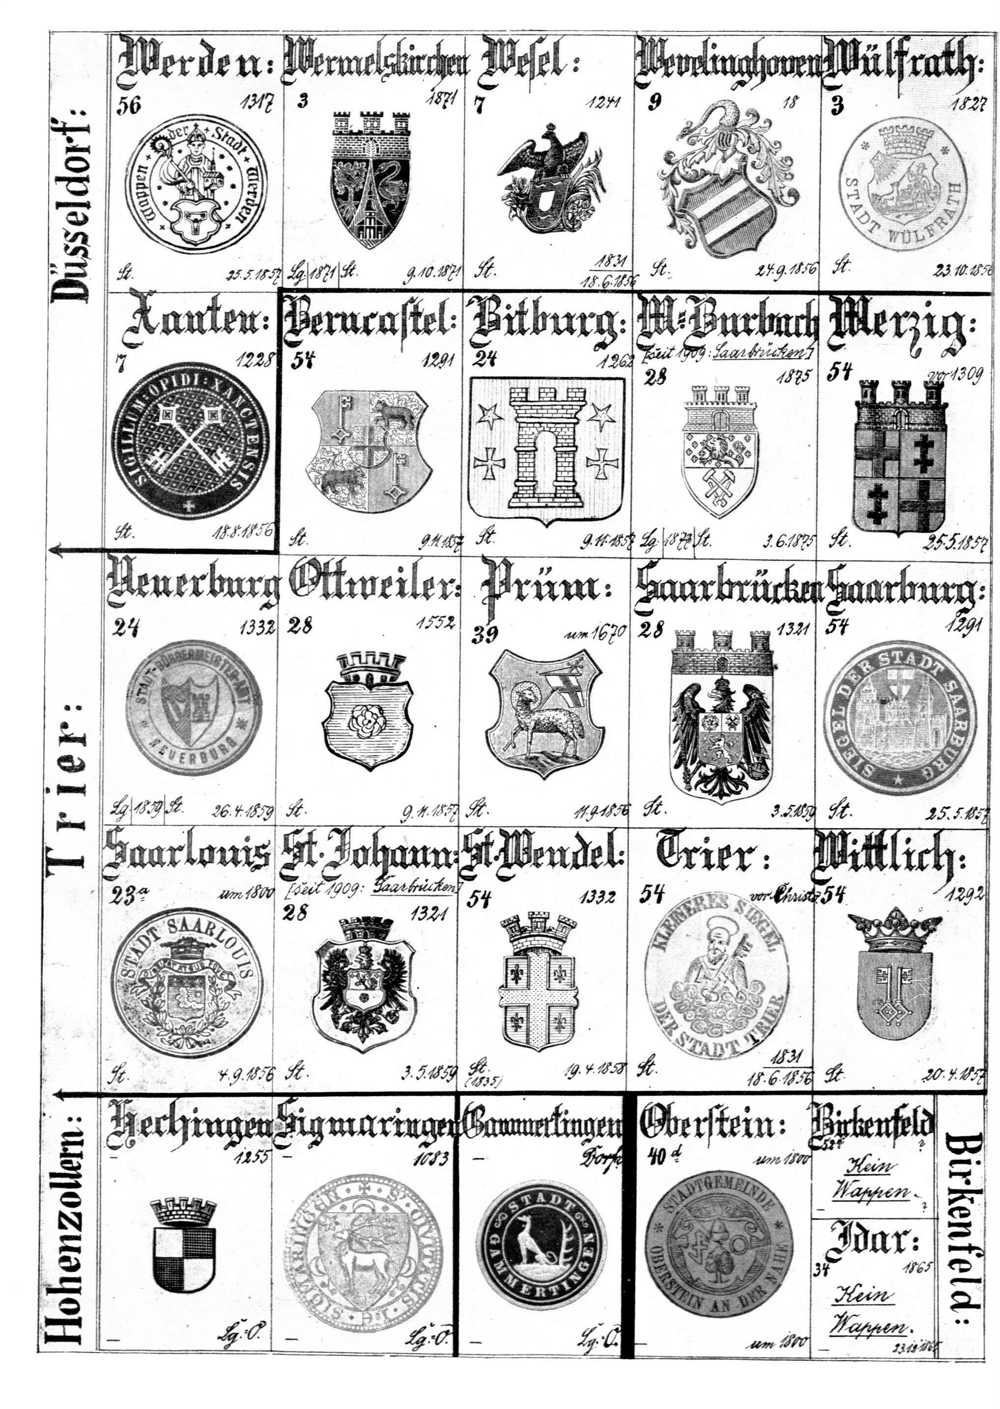 Düsseldorf:
Werden:
56 1317
Wappen der Stadt Werden
St. 25.5.1857
Wermelskirchen
3 1871
Lg. 1871 St. 9.10.1871
Wesel:
7 1241
St. 1831
18.6.1856
Wevelinghoven
9 18
St. 24.9.1856
Wülfrath:
3 1827
STADT WÜLFRATH
St. 23.10.1856
Xanten:
7 1228
SIGILLUM: OPIDI: XANCTENSIS
St. 18.8.1856
Trier:
Berncastel:
54 1291
St. 9.11.1857
Bitburg:
24 1262
St. 9.11.1857
M=Burbach
[seit 1909: Saarbrücken]
28 1875
Lg. 1873 St. 3.6.1875
Merzig:
54 vor 1309
St. 25.5.1857
Neuerburg
24 1332
STADT-BÜRGERMEISTER-AMT
NEUERBURG
Lg. 1859 St. 26.4.1859
Ottweiler:
28 1552
St. 9.11.1857
Prüm:
39 um 1670
St. 11.9.1856
Saarbrücken
28 1321
St. 3.5.1859
Saarburg:
54 1291
SIEGEL DER STADT SAARBURG
St. 25.5.1857
Saarlouis
23a um 1800
STADT SAARLOUIS
St. 4.9.1856
St. Johann:
[seit 1909: Saarbrücken]
28 1321
St. 3.5.1859
St. Wendel:
54 1332
St. 19.4.1858
(1835)
Trier:
54 vor Christo
KLEINERES SIEGEL
DER STADT TRIER
St. 1831
18.6.1856
Wittlich:
54 1292
St. 20.4.1857
Hohenzollern:
Hechingen
– 1255
– Lg.: O.
Sigmaringen
– 1083
– Lg.: O.
Gammertingen
– Dorf
STADT
GAMMERTINGEN
– Lg.: O.
Birkenfeld:
Oberstein:
40d um 1800
STADTGEMEINDE
OBERSTEIN AN DER NAHE
– um 1800
Birkenfeld
?
Kein
Wappen.
– ?
Idar:
34 1865
Kein
Wappen.
–